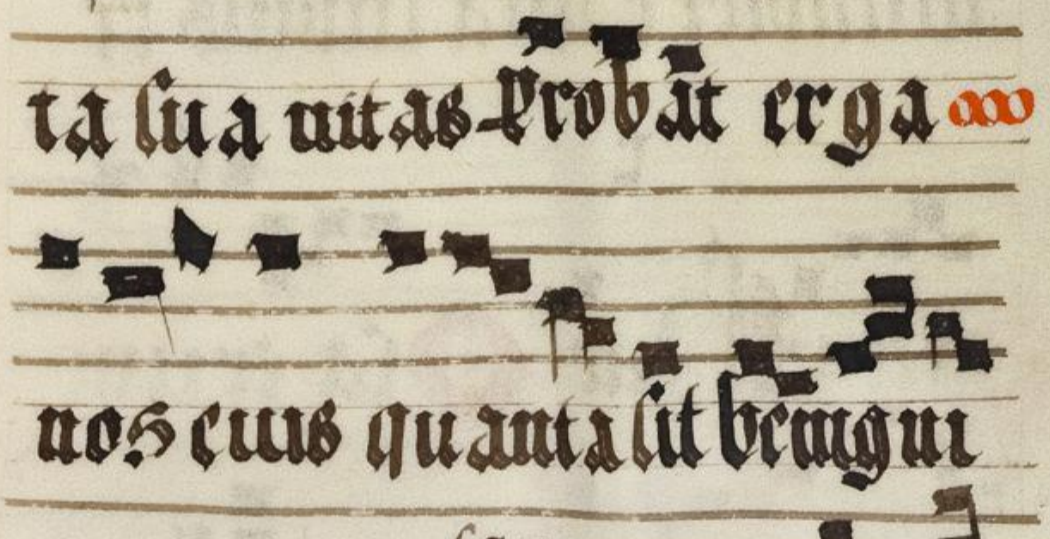 ta sua uitas Probat erga
nos eius quanta sit benigni